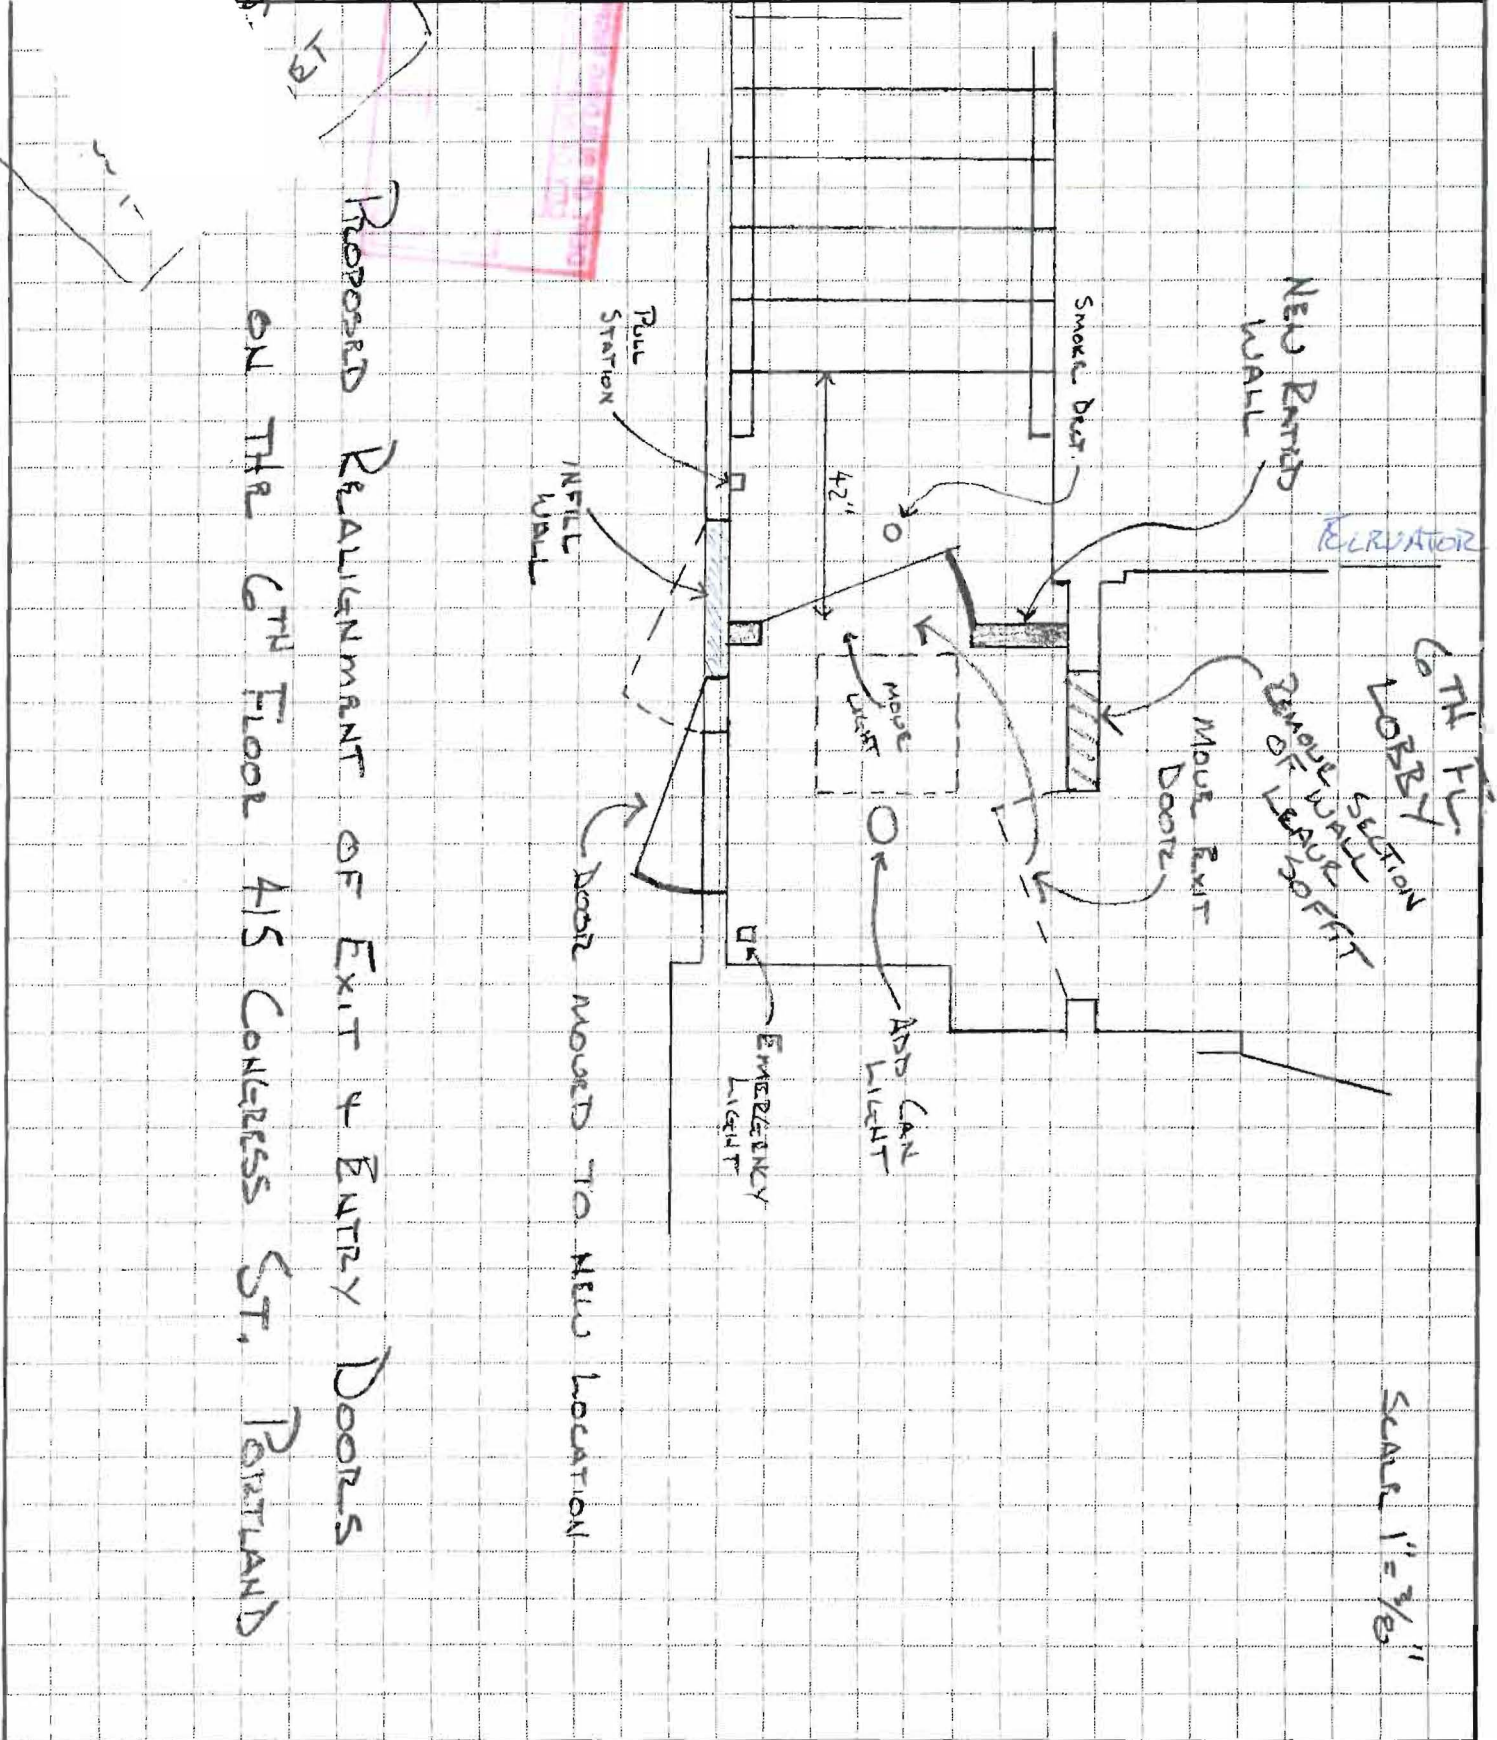 SCALE 1" = 3/8"
6TH FL.
LOBBY
ELEVATOR
REMOVE SECTION
OF WALL
LEAVE SOFFIT
NEW RATED
WALL
MOVE EXIT
DOOR
SMOKE DECT.
MOVE
LIGHT
ADD CAN
LIGHT
42"
EMERGENCY
LIGHT
PULL
STATION
INFILL
WALL
DOOR MOVED TO NEW LOCATION
PROPOSED REALIGNMENT OF EXIT & ENTRY DOORS
ON THE 6TH FLOOR 415 CONGRESS ST. PORTLAND